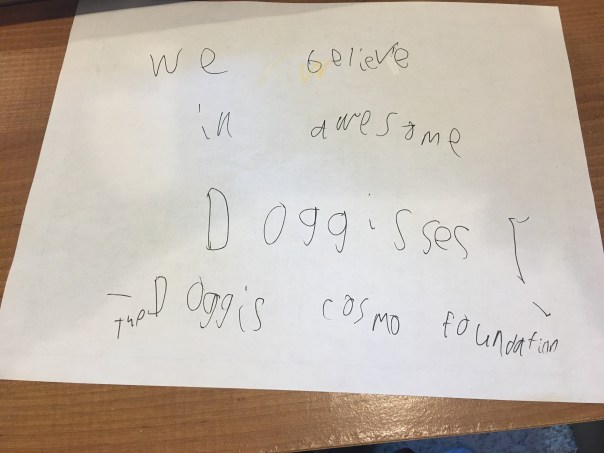 we believe
in awesome
Doggisses!
-The Doggis cosmo foundation